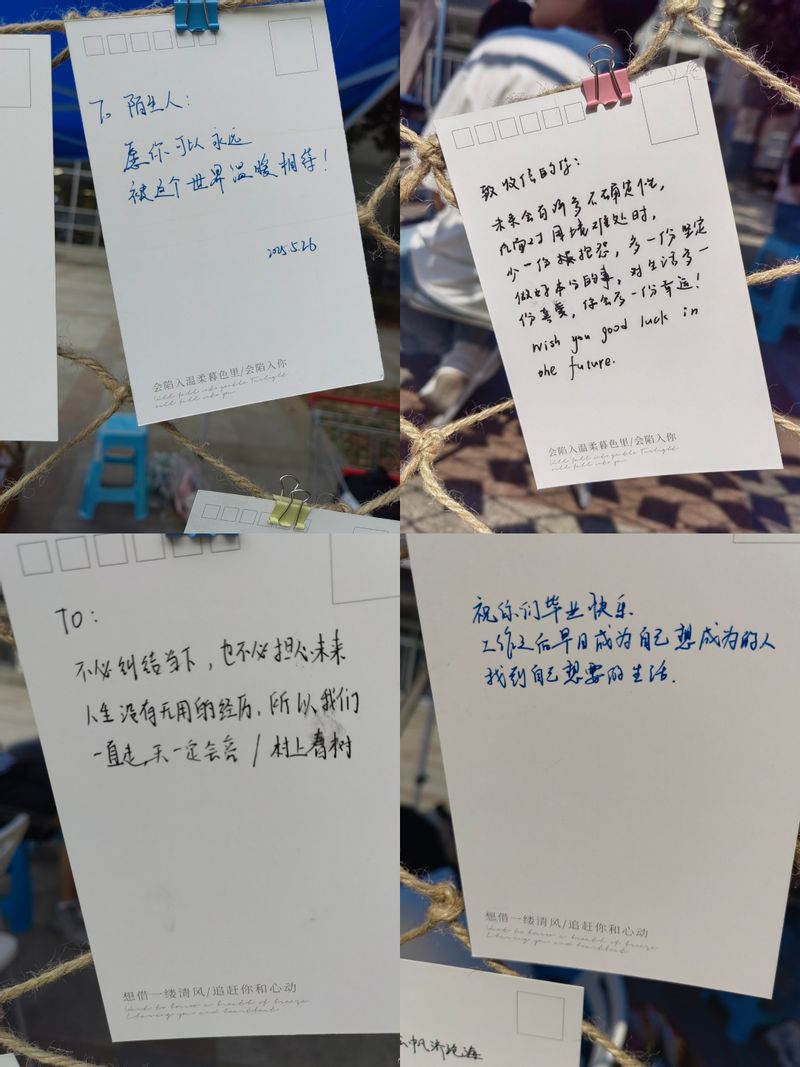 To 陌生人:
愿你可以永远
被这个世界温暖相待!
2025.5.26
会陷入温柔暮色里/会陷入你
致收信的你:
未来会有许多不确定性,
少一份抱怨,多一份坚定
做好本分的事,对生活多一
份喜爱,你会多一份幸运!
wish you good luck in
the future.
会陷入温柔暮色里/会陷入你
TO:
不必纠结当下,也不必担心未来
人生没有无用的经历,所以,我们
一直走,天一定会亮 / 村上春树
想借一缕清风/追赶你和心动
祝你们毕业快乐
工作之后早日成为自己想成为的人
找到自己想要的生活.
想借一缕清风/追赶你和心动
帆济沧海